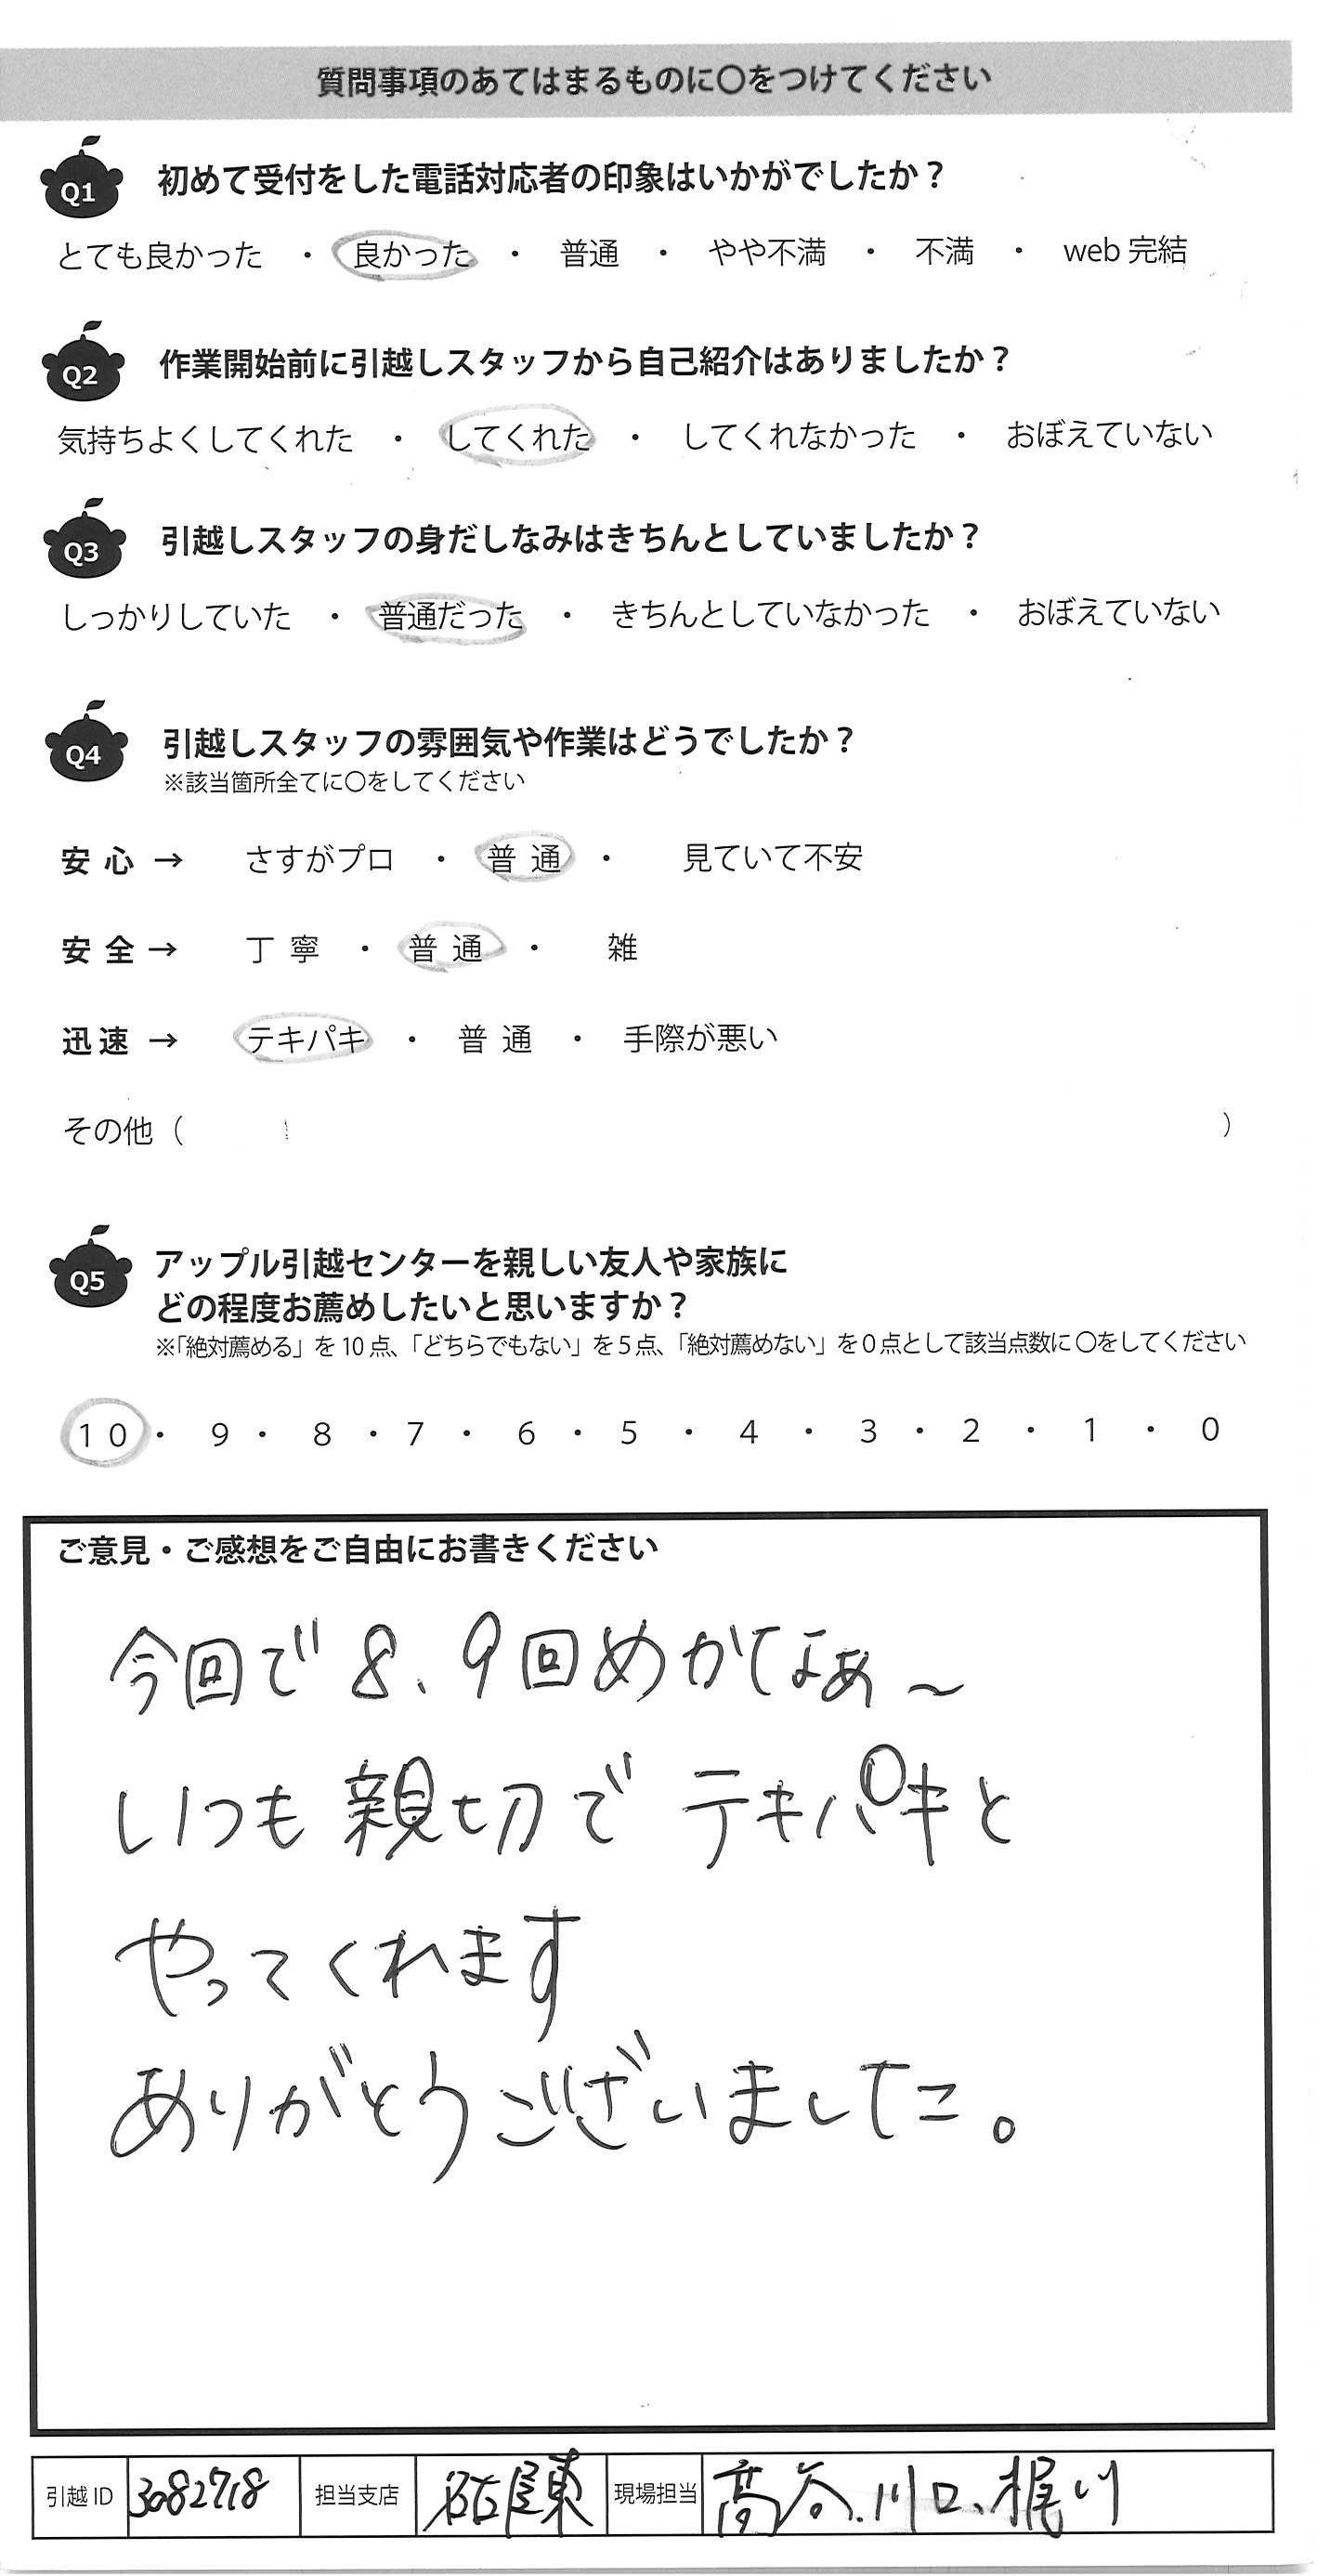 質問事項のあてはまるものに〇をつけてください
Q1 初めて受付をした電話対応者の印象はいかがでしたか？
とても良かった ・ 良かった ・ 普通 ・ やや不満 ・ 不満 ・ web 完結
Q2 作業開始前に引越しスタッフから自己紹介はありましたか？
気持ちよくしてくれた ・ してくれた ・ してくれなかった ・ おぼえていない
Q3 引越しスタッフの身だしなみはきちんとしていましたか？
しっかりしていた ・ 普通だった ・ きちんとしていなかった ・ おぼえていない
Q4 引越しスタッフの雰囲気や作業はどうでしたか？
※該当箇所全てに〇をしてください
安心 → さすがプロ ・ 普通 ・ 見ていて不安
安全 → 丁寧 ・ 普通 ・ 雑
迅速 → テキパキ ・ 普通 ・ 手際が悪い
その他（ ）
Q5 アップル引越センターを親しい友人や家族に
どの程度お薦めしたいと思いますか？
※「絶対薦める」を 10 点、「どちらでもない」を 5 点、「絶対薦めない」を 0 点として該当点数に 〇をしてください
10 ・ 9 ・ 8 ・ 7 ・ 6 ・ 5 ・ 4 ・ 3 ・ 2 ・ 1 ・ 0
ご意見・ご感想をご自由にお書きください
今回で 8、9回めかなぁ～
いつも親切で テキパキと
やってくれます
ありがとうございました。
引越 ID 3082718 担当支店 名古屋東 現場担当 髙谷、川口、梶川